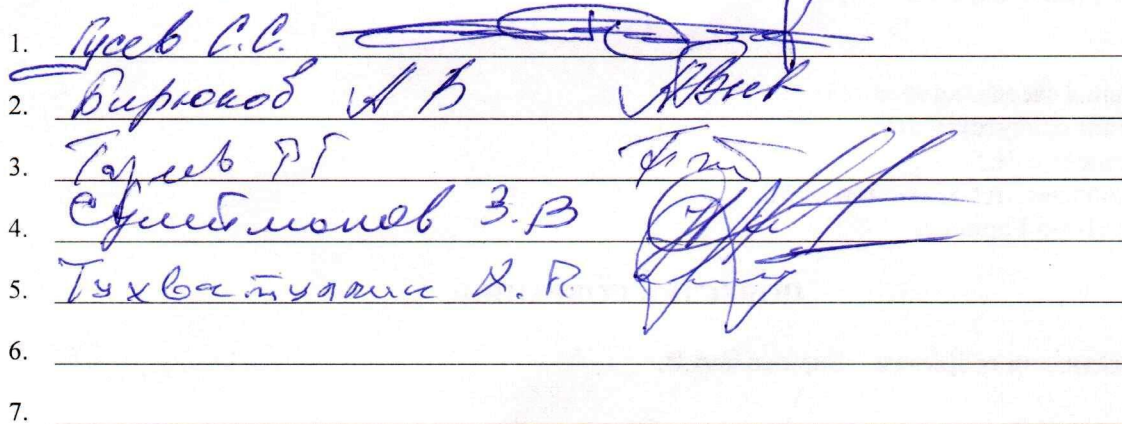 1. Гусев С.С.
2. Бирюков А В
3. Гареев РГ
4. Сулейманов З.В
5. Тухватуллин Х.Р.
6.
7.